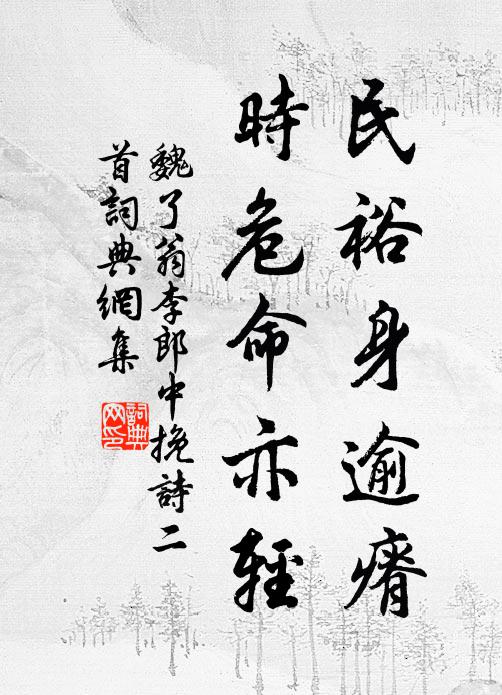 民裕身逾瘠
時危命亦輕
魏了翁李郎中挽詩二
首詞典網集
詞典网印